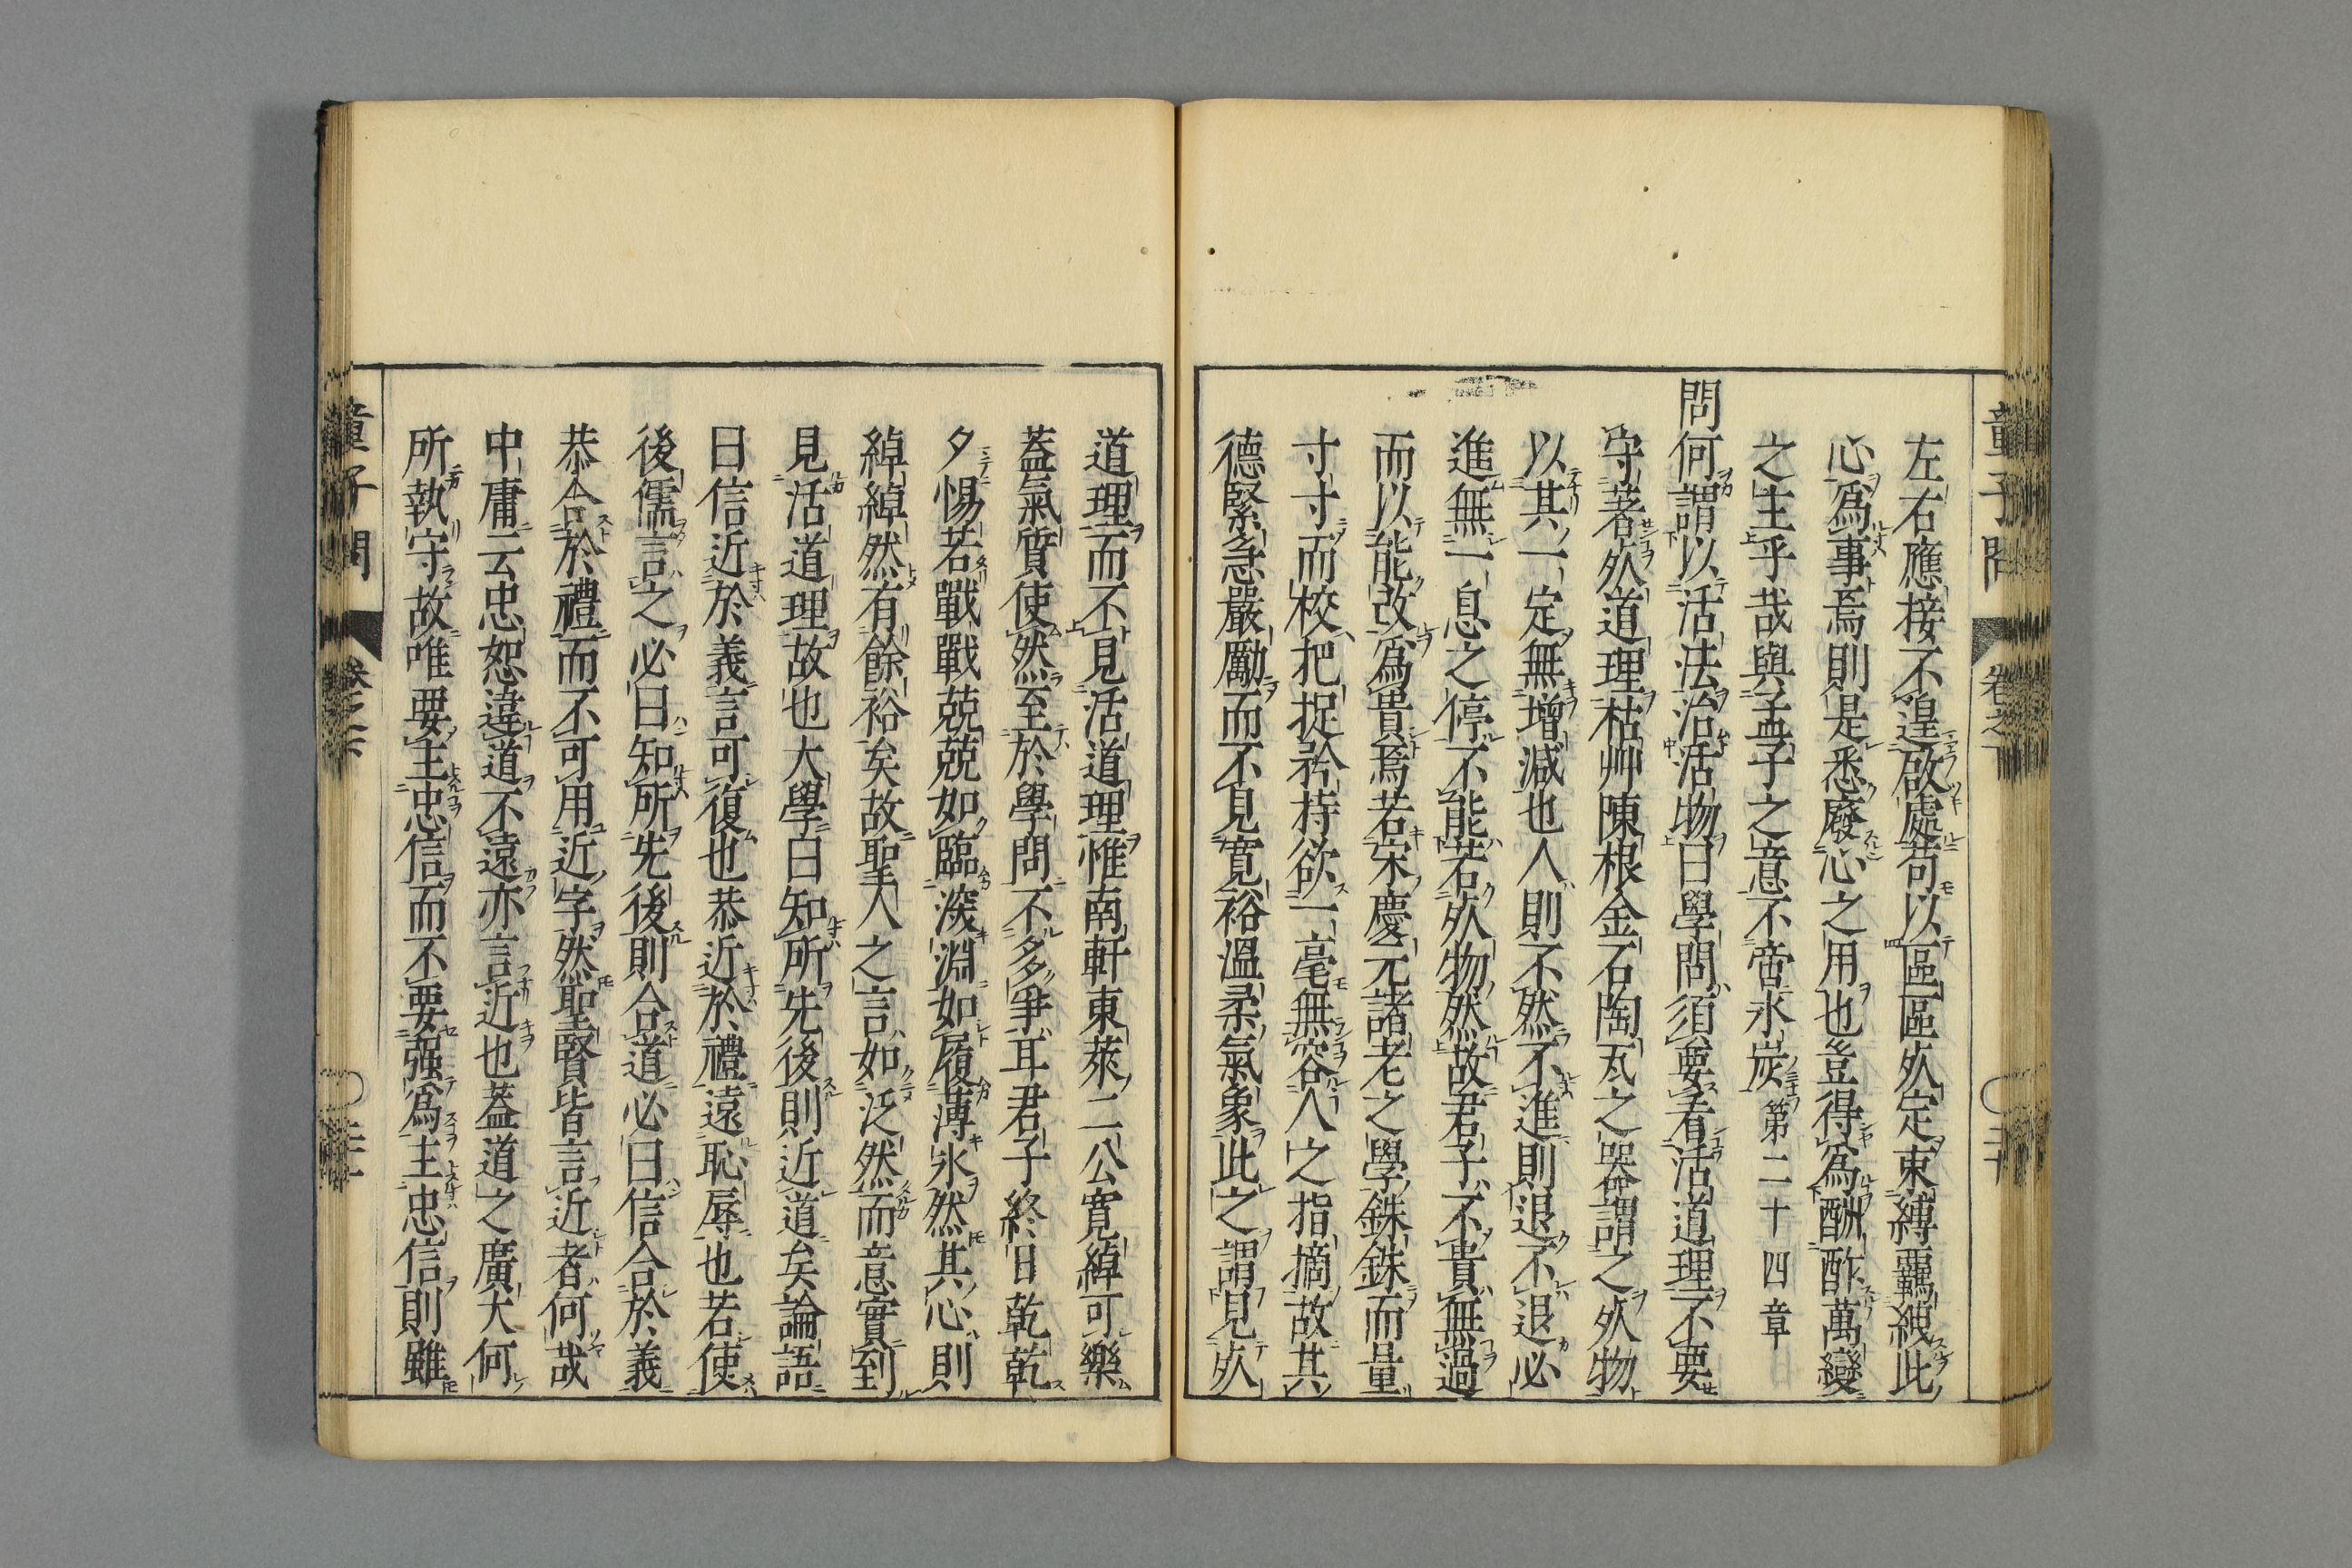 童子問
卷之下
左右應接不遑啟處苟以區區死定束縛羈絏此
心爲事焉則是悉廢心之用也豈得爲酬酢萬變
之主乎哉與孟子之意不啻氷炭第二十四章
問何謂以活法治活物曰學問須要看活道理不要
守著死道理枯艸陳根金石陶瓦之器謂之死物
以其一定無增減也人則不然不進則退不退必
進無一息之停不能若死物然故君子不貴無過
而以能改爲貴焉若宋慶元諸老之學銖銖而量
寸寸而校把捉矜持欲一毫無容人之指摘故其
德緊急嚴勵而不見寬裕溫柔氣象此之謂見死
道理而不見活道理惟南軒東萊二公寬綽可樂
蓋氣質使然至於學問不多爭耳君子終日乾乾
夕惕若戰戰兢兢如臨深淵如履薄氷然其心則
綽綽然有餘裕矣故聖人之言如泛然而意實到
見活道理故也大學曰知所先後則近道矣論語
曰信近於義言可復也恭近於禮遠恥辱也若使
後儒言之必曰知所先後則合道必曰信合於義
恭合於禮而不可用近字然聖賢皆言近者何哉
中庸云忠恕違道不遠亦言近也蓋道之廣大何
所執守故唯要主忠信而不要强爲主忠信則雖
童子問